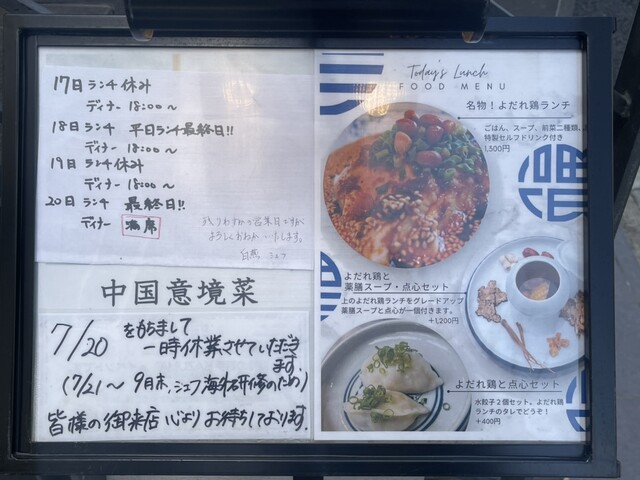 17日 ランチ 休み
ディナー 18:00〜
18日 ランチ 平日ランチ最終日!!
ディナー 18:00〜
19日 ランチ休み
ディナー 18:00〜
20日 ランチ 最終日!!
ディナー 満席
残りわずかの営業日ですが
よろしくお願いいたします。
シェフ
中国意境菜
7/20 をもちまして
一時休業させていただき
ます。
(7/21〜9月末、シェフ海外研修のため)
皆様の御来店心よりお待ちしております。
Today's Lunch
FOOD MENU
名物！よだれ鶏ランチ
ごはん、スープ、前菜二種類、
特製セルフドリンク付き
1,300円
よだれ鶏と
薬膳スープ・点心セット
上のよだれ鶏ランチをグレードアップ
薬膳スープと点心が一個付きます。
+1,200円
よだれ鶏と点心セット
水餃子２個セット。よだれ鶏
ランチのタレでどうぞ！
+400円